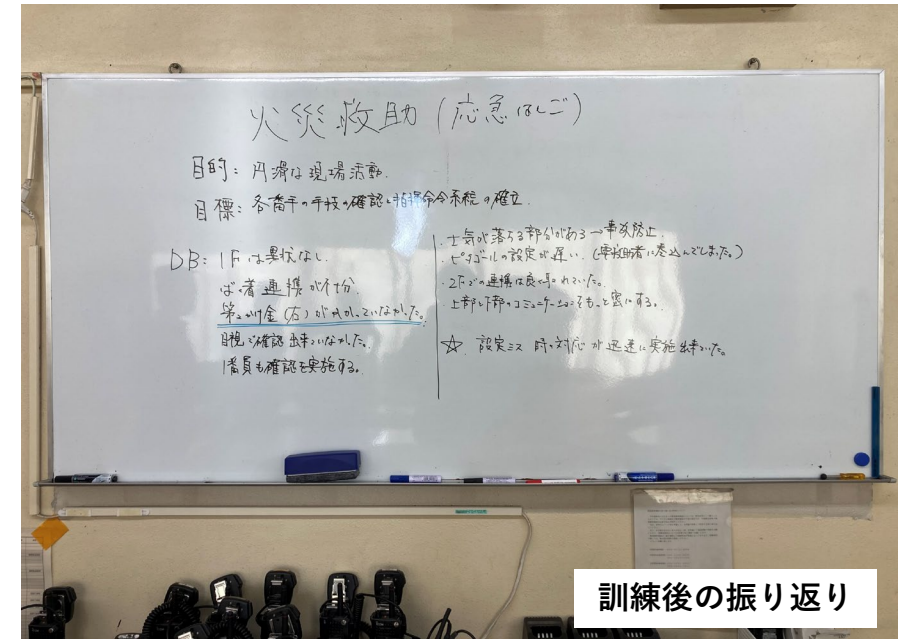 火災救助(応急はしご)
目的: 円滑な現場活動.
目標: 各番手の手技の確認と指揮命令系統の確立.
DB: 1Fは異状なし.
連携が不十分.
目視で確認出来ていなかった。
1番員も確認を実施する。
・士気が落ちる部分がある→事故防止.
の設定が遅い.(要救助者に巻込んでしまった。)
・2Fでの連携は良く取れていた。
・上部と下部のコミュニケーションをもっと密にする。
☆ 設定ミス時の対応が迅速に実施出来ていた。
訓練後の振り返り